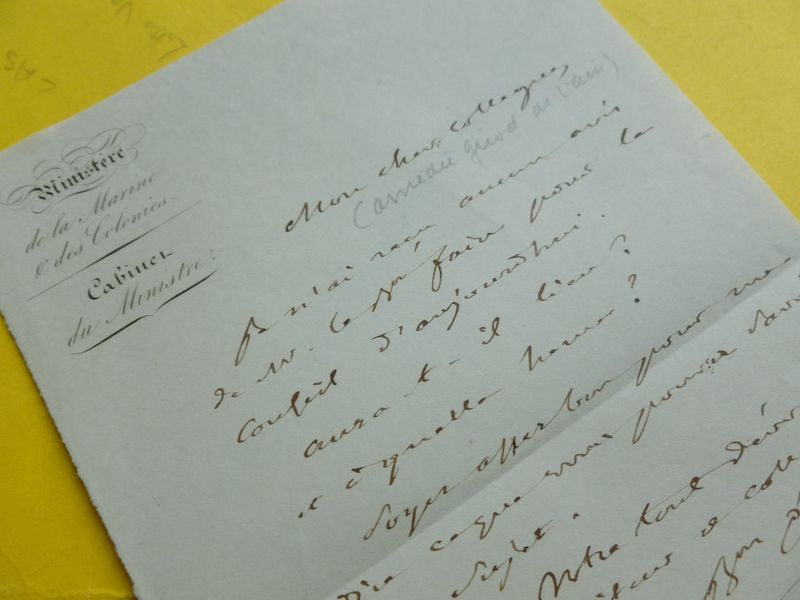 Ministère
de la Marine
& des Colonies.
Cabinet
du Ministre.
Mon cher collègue,
(amédée girod de l'ain)
Je n'ai reçu aucun avis
de M. le Pdt faire pour le
conseil d'aujourd'hui.
aura-t-il lieu?
et à quelle heure?
Soyez assez bon pour me
dire ce que vous pouvez savoir
sujet.
Votre tout dévoué
et coll